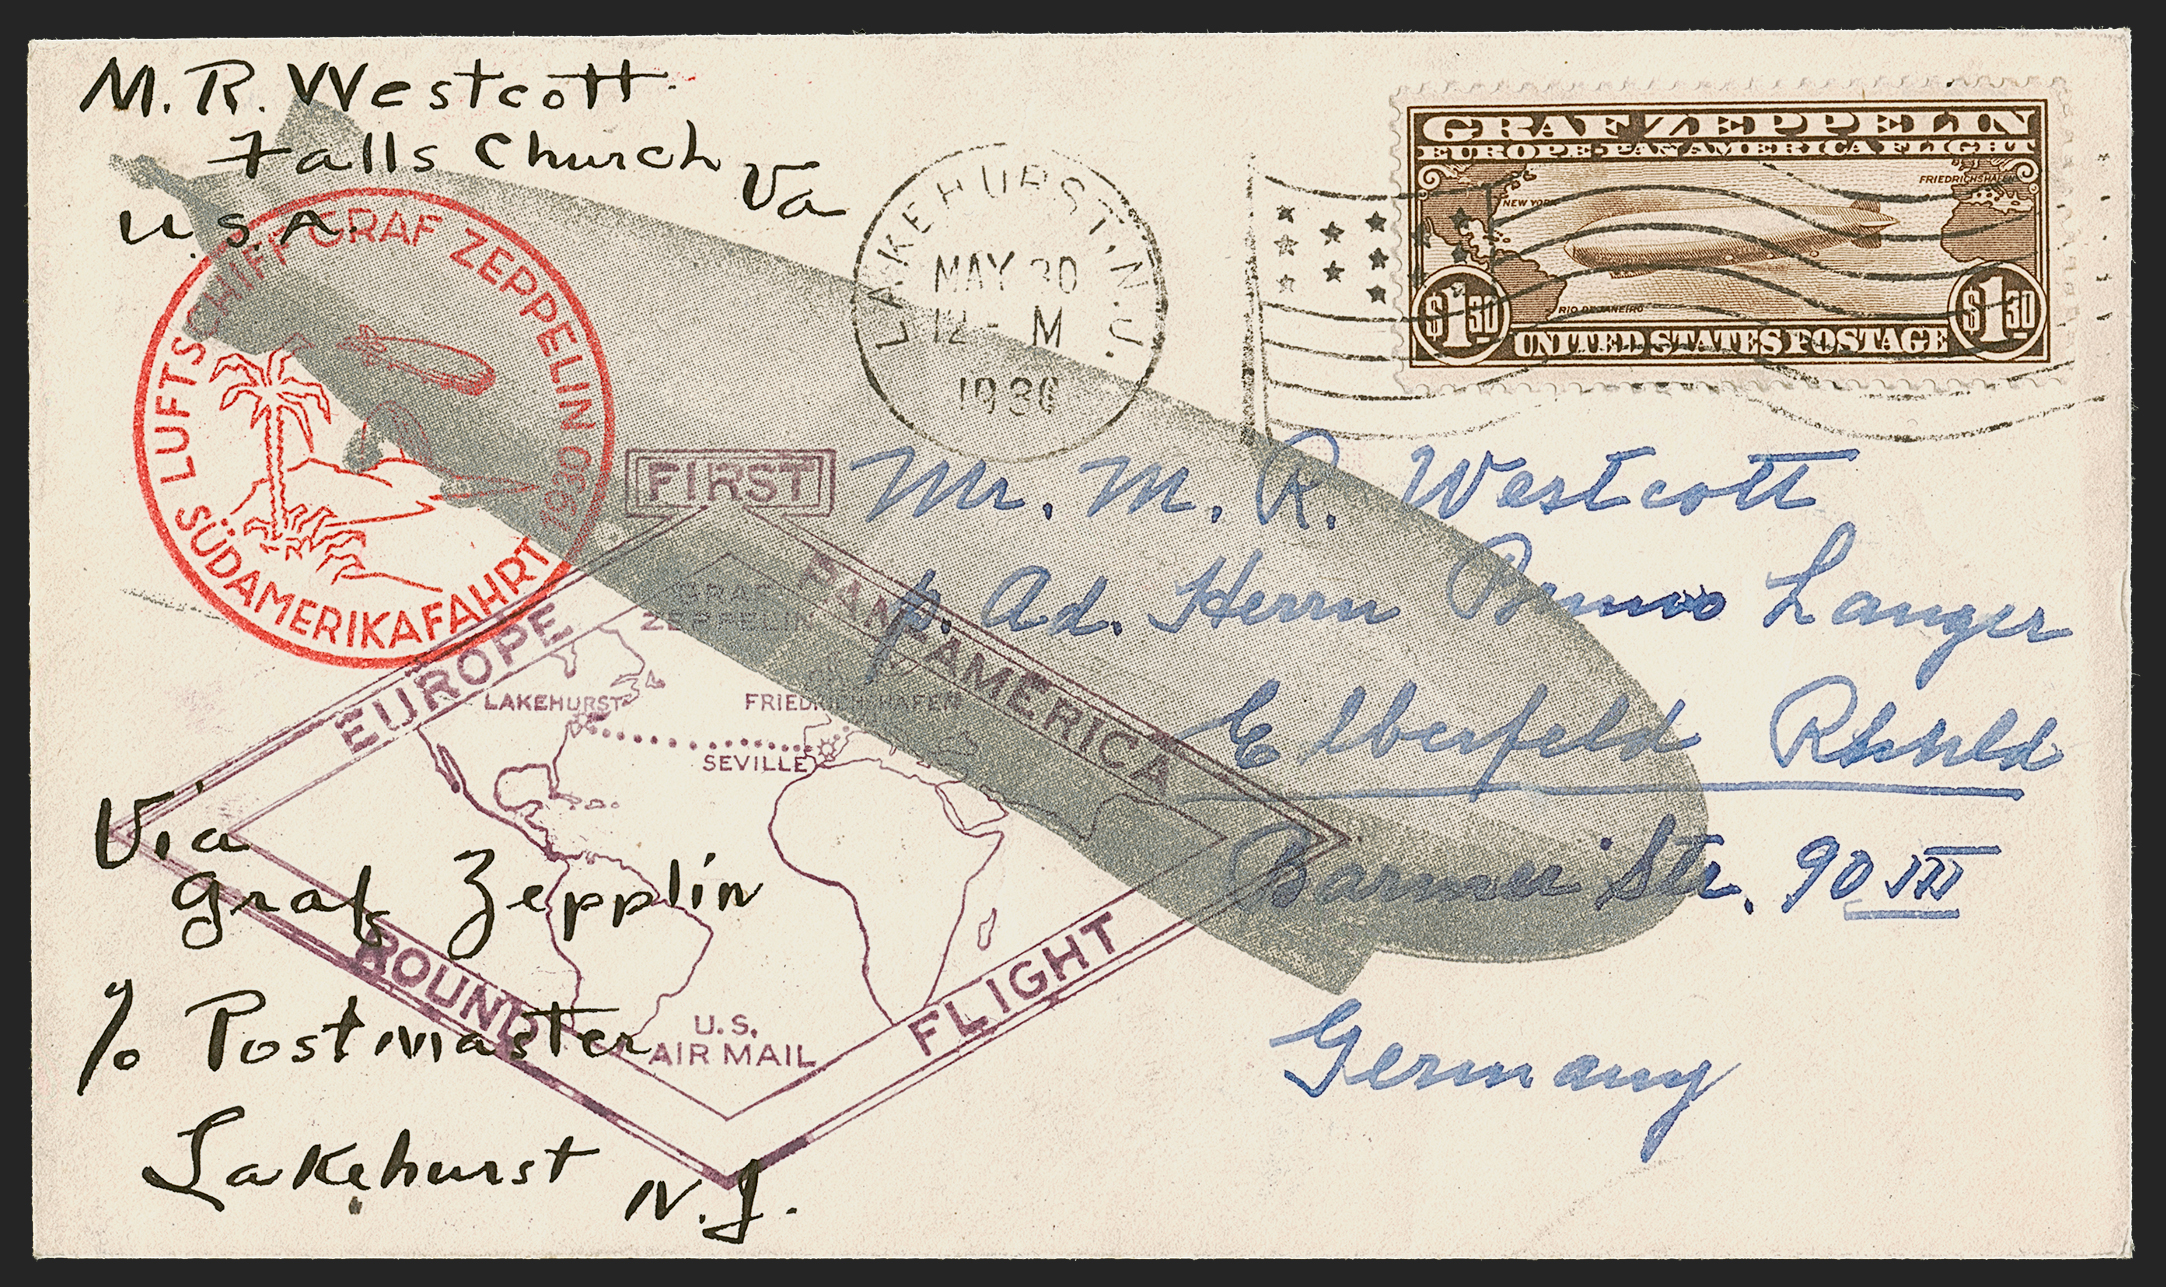 M. R. Westcott
Falls Church Va
U.S.A.
LUFTSCHIFF GRAF ZEPPELIN 1930
SÜDAMERIKAFAHRT
LAKEHURST, N.J.
MAY 30
12- M
1930
GRAF ZEPPELIN
EUROPE-PAN AMERICA FLIGHT
FRIEDRICHSHAFEN
NEW YORK
RIO DE JANEIRO
$1.30 $1.30
UNITED STATES POSTAGE
FIRST
EUROPE
PAN-AMERICA
GRAF
ZEPPELIN
LAKEHURST
FRIEDRICHSHAFEN
SEVILLE
ROUND
FLIGHT
U.S.
AIR MAIL
Mr. M. R. Westcott
p. Ad. Herrn Bruno Langer
Elberfeld
Barmer Str. 90 III
Germany
Via
Graf Zepplin
c/o Postmaster
Lakehurst N.J.